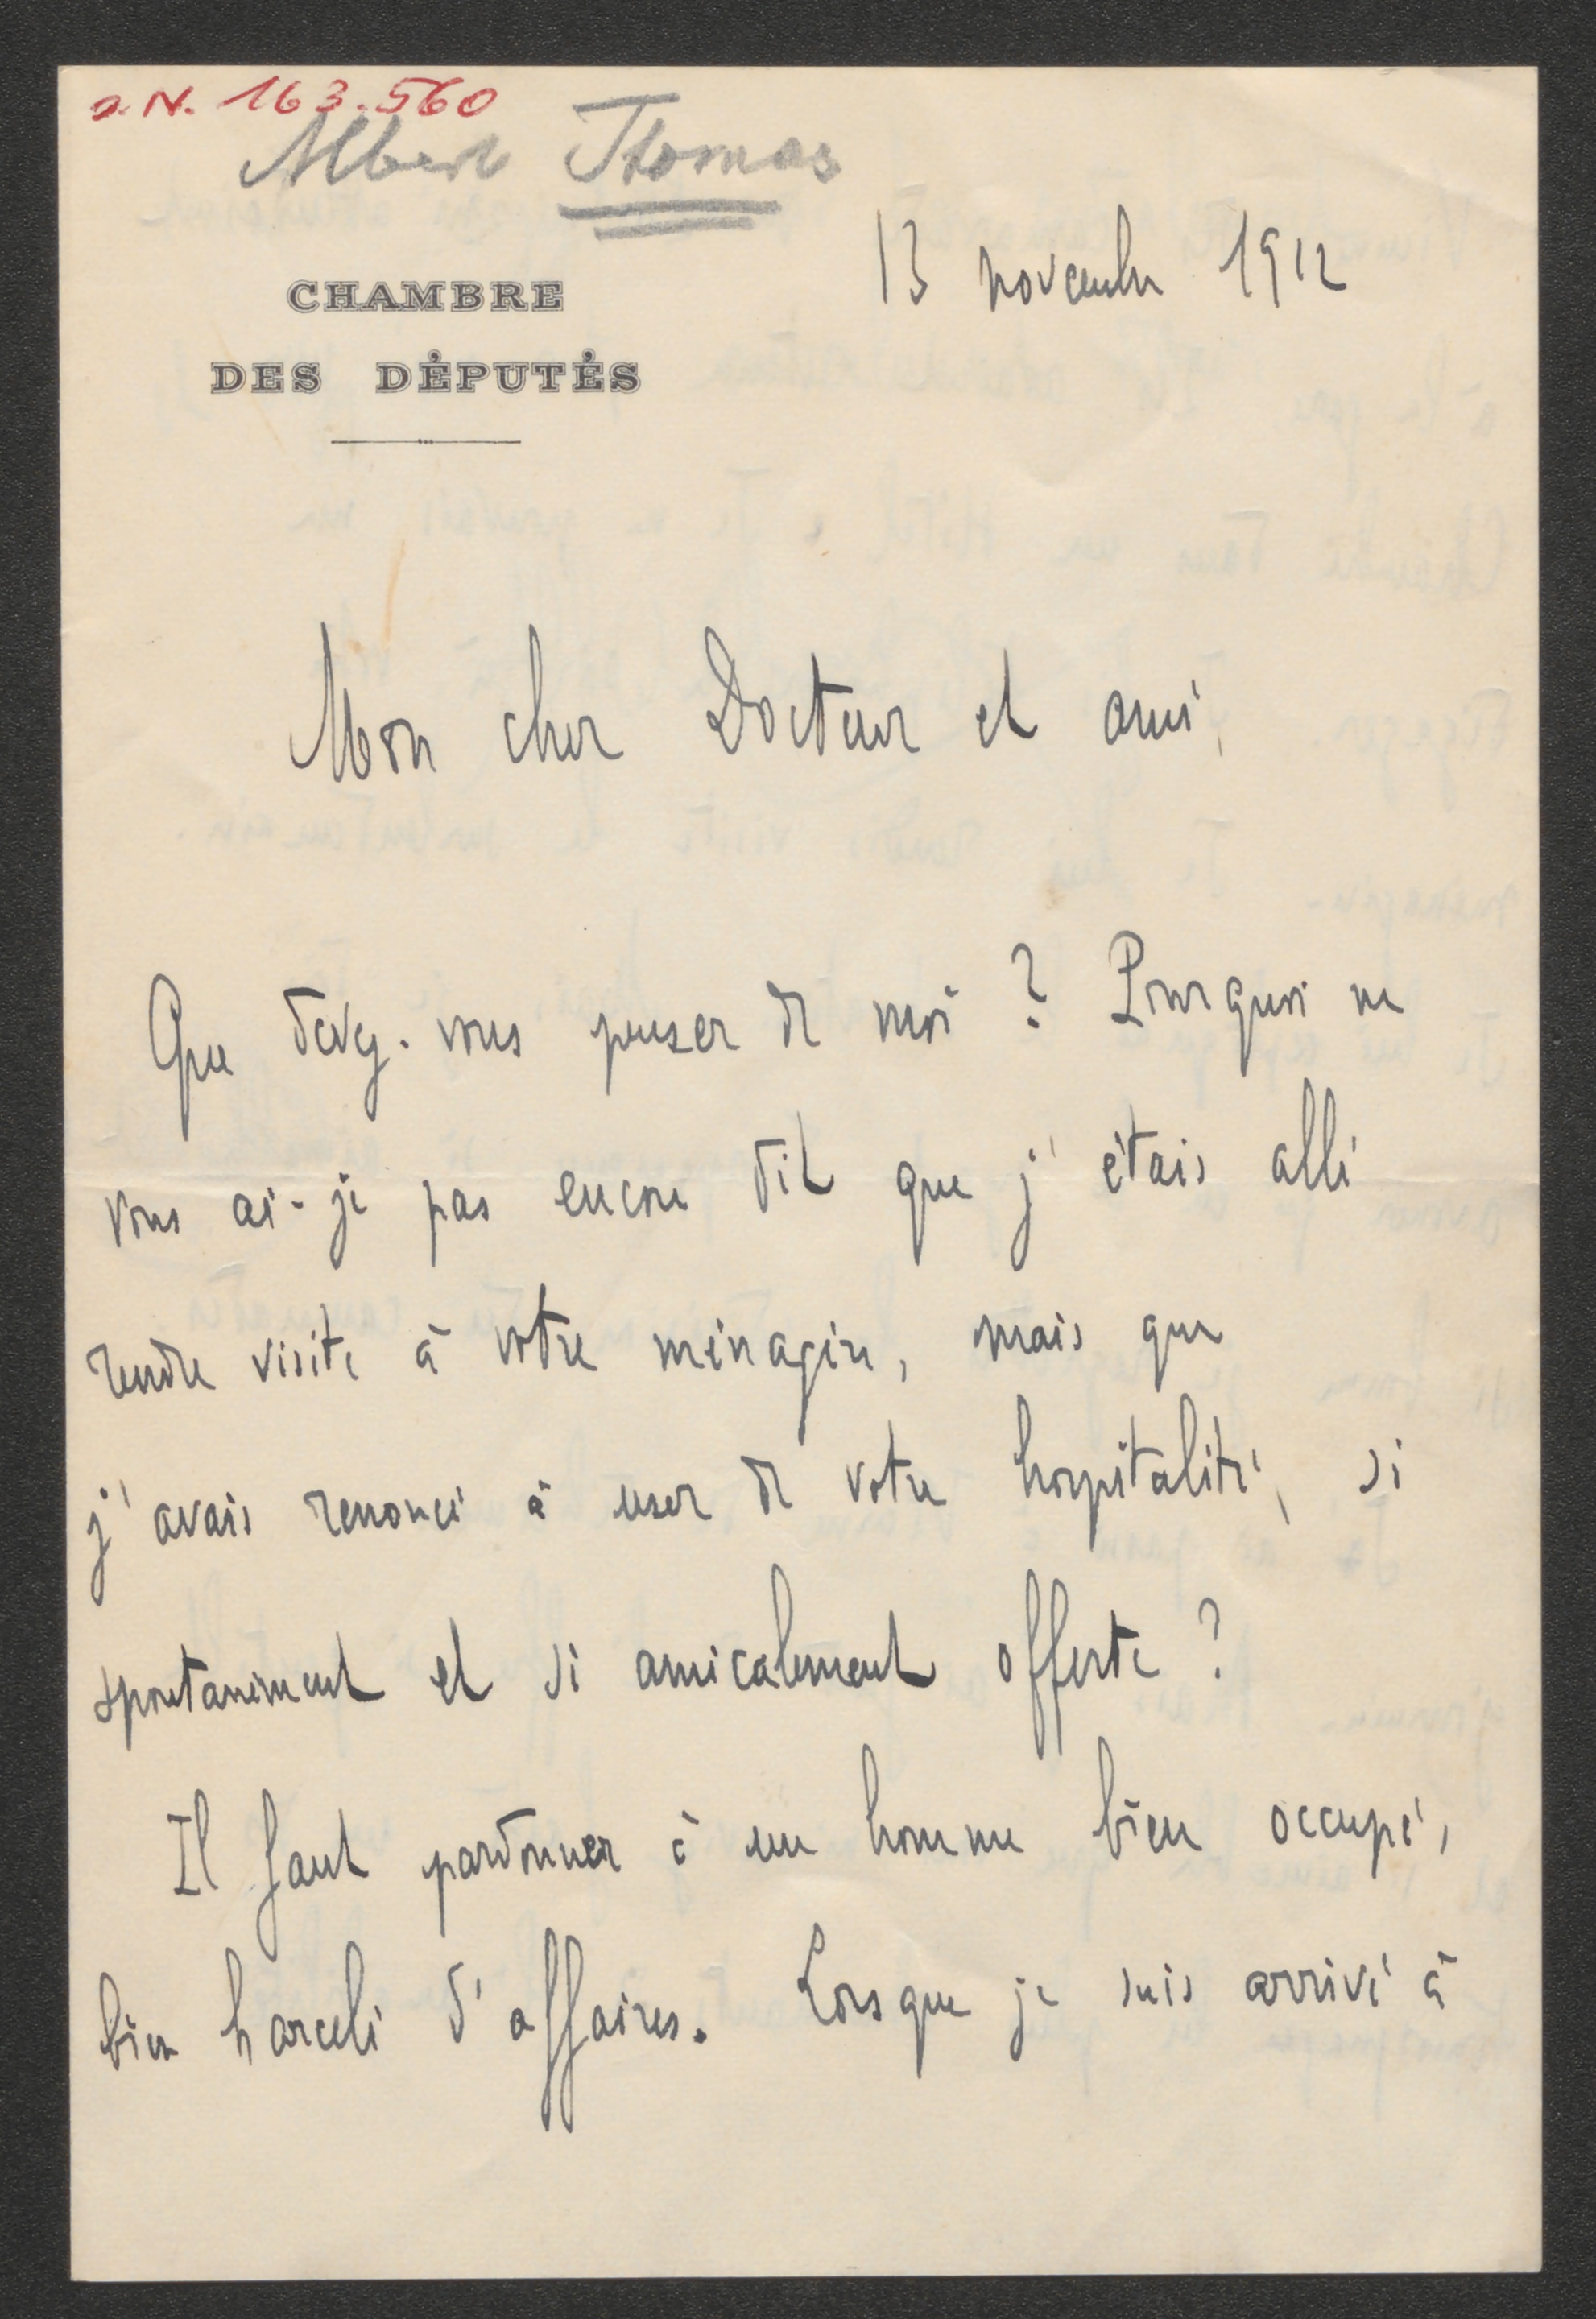 J.N. 163.560
Albert Thomas
13 novembre 1912
CHAMBRE
DES DÉPUTÉS
Mon cher Docteur et ami,
Que devez-vous penser de moi ? Pourquoi ne
vous ai-je pas encore dit que j'étais allé
rendre visite à votre ménagère, mais que
j'avais renoncé à user de votre hospitalité, si
spontanément et si amicalement offerte ?
Il faut pardonner à un homme bien occupé,
bien harcelé d'affaires. Lorsque je suis arrivé à